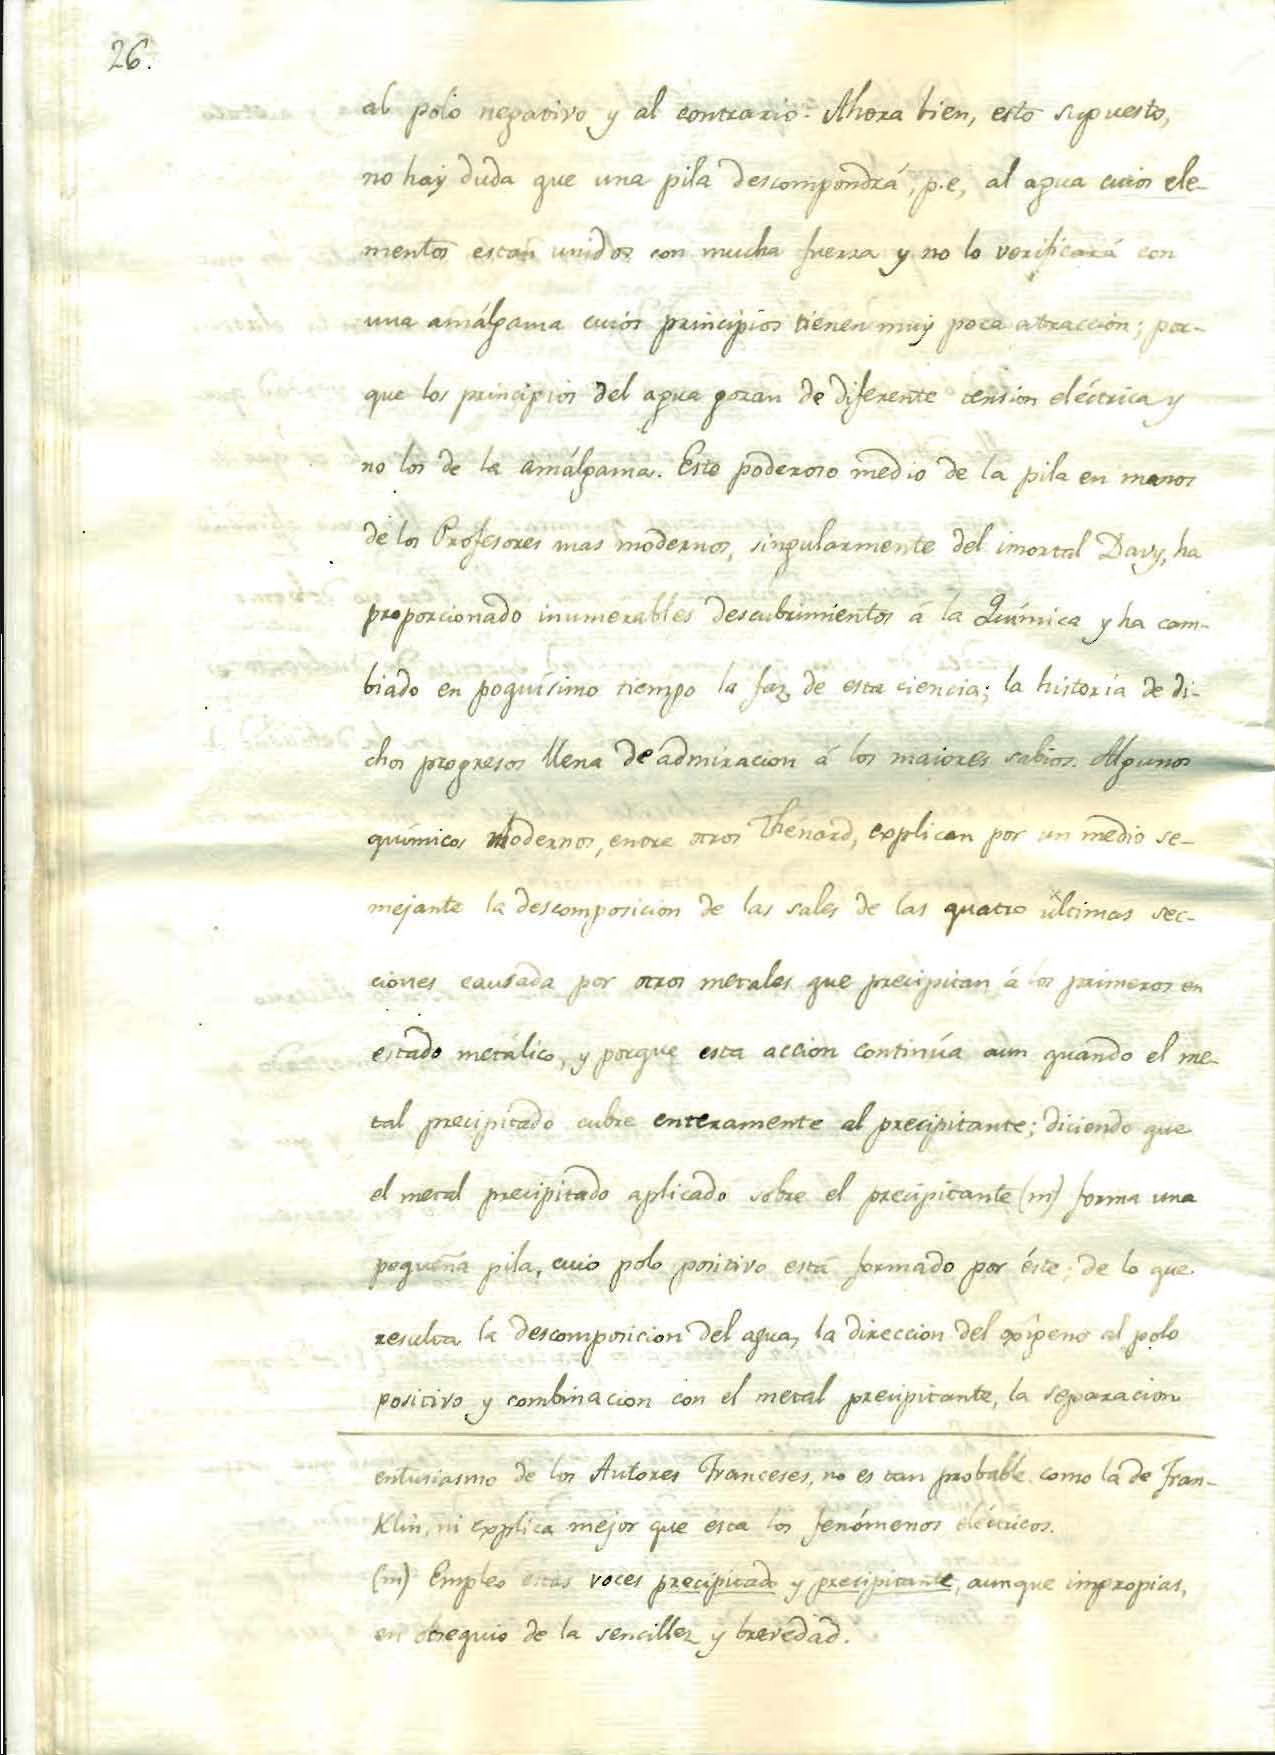 26.
al polo negativo y al contrario. Ahora bien, esto supuesto,
no hay duda que una pila descompondrá, p.e, al agua cuios ele-
mentos están unidos con mucha fuerza y no lo verificará con
una amálgama cuios principios tienen muy poca atraccion; por-
que los principios del agua gozan de diferente tension eléctrica y
no los de la amálgama. Este poderoso medio de la pila en manos
de los Profesores mas modernos, singularmente del imortal Davy, ha
proporcionado inumerables descubrimientos á la Química y ha cam-
biado en poquísimo tiempo la faz de esta ciencia; la historia de di-
chos progresos llena de admiracion á los maiores sabios. Algunos
químicos modernos, entre otros Thénard, explican por un medio se-
mejante la descomposicion de las sales de las quatro ultimas sec-
ciones causada por otros metales que precipitan á los primeros en
estado metálico, y porque esta accion continúa aun quando el me-
tal precipitado cubre enteramente al precipitante; diciendo que
el metal precipitado aplicado sobre el precipitante (m) forma una
pequeña pila, cuio polo positivo está formado por éste; de lo que
resulta la descomposicion del agua, la direccion del oxîgeno al polo
positivo y combinacion con el metal precipitante, la separacion
entusiasmo de los Autores Franceses, no es tan probable como la de Fran-
Klin, ni explica mejor que esta los fenómenos eléctricos.
(m) Empleo estas voces precipitado y precipitante, aunque impropias,
en obsequio de la sencillez y brevedad.